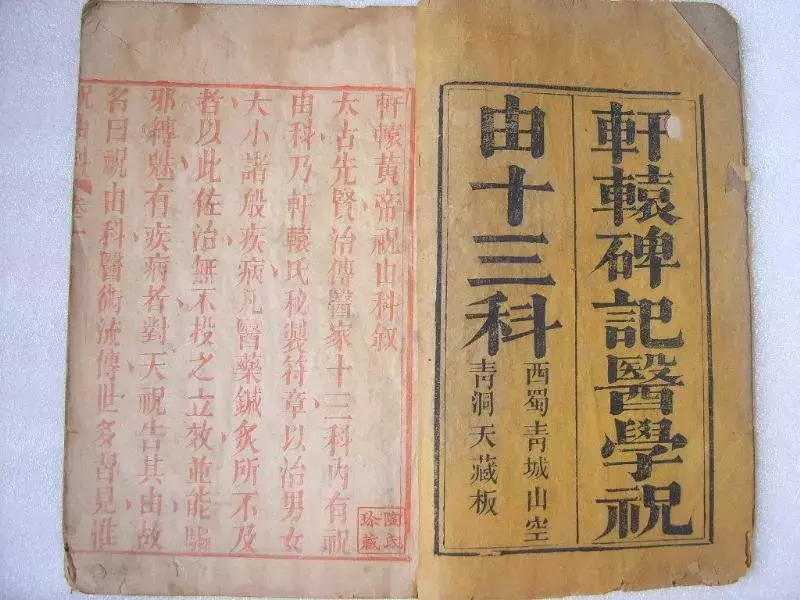 軒轅碑記醫學祝
由十三科
西蜀青城山空
青洞天藏板
軒轅黃帝祝由科叙
太古先賢治傳醫家十三科內有祝
由科乃軒轅氏秘製符章以治男女
大小諸般疾病凡醫藥鍼灸所不及
者以此佐治無不投之立效並能驅
邪縛魅有疾病者對天祝告其由故
名曰祝由科醫術流傳世多習見惟
祝由科
卷一
珍藏